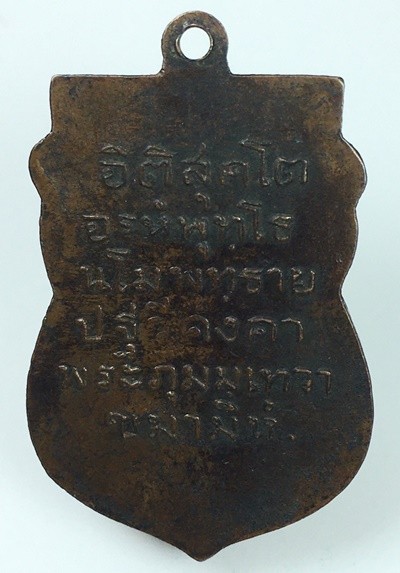 อิติสุคโต
อรหํพุทฺโธ
นโมพุทฺธาย
ปฐวีคงคา
พระภุมมเทวา
ขมามิหํ.